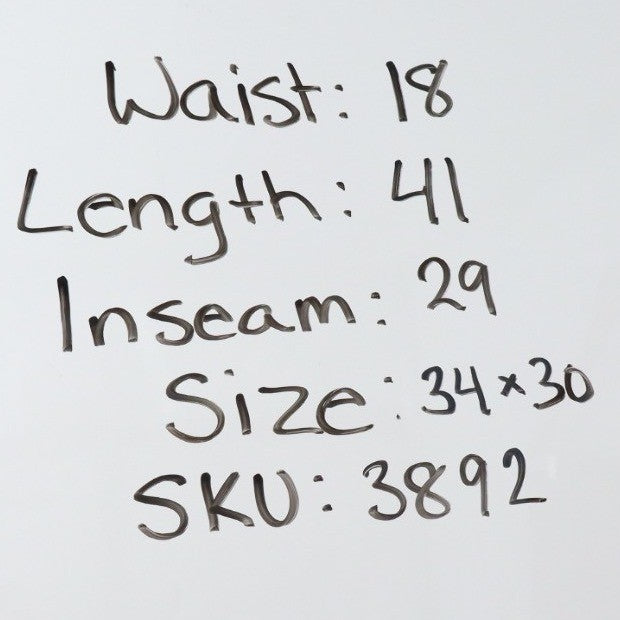 Waist: 18
Length: 41
Inseam: 29
Size: 34x30
SKU: 3892